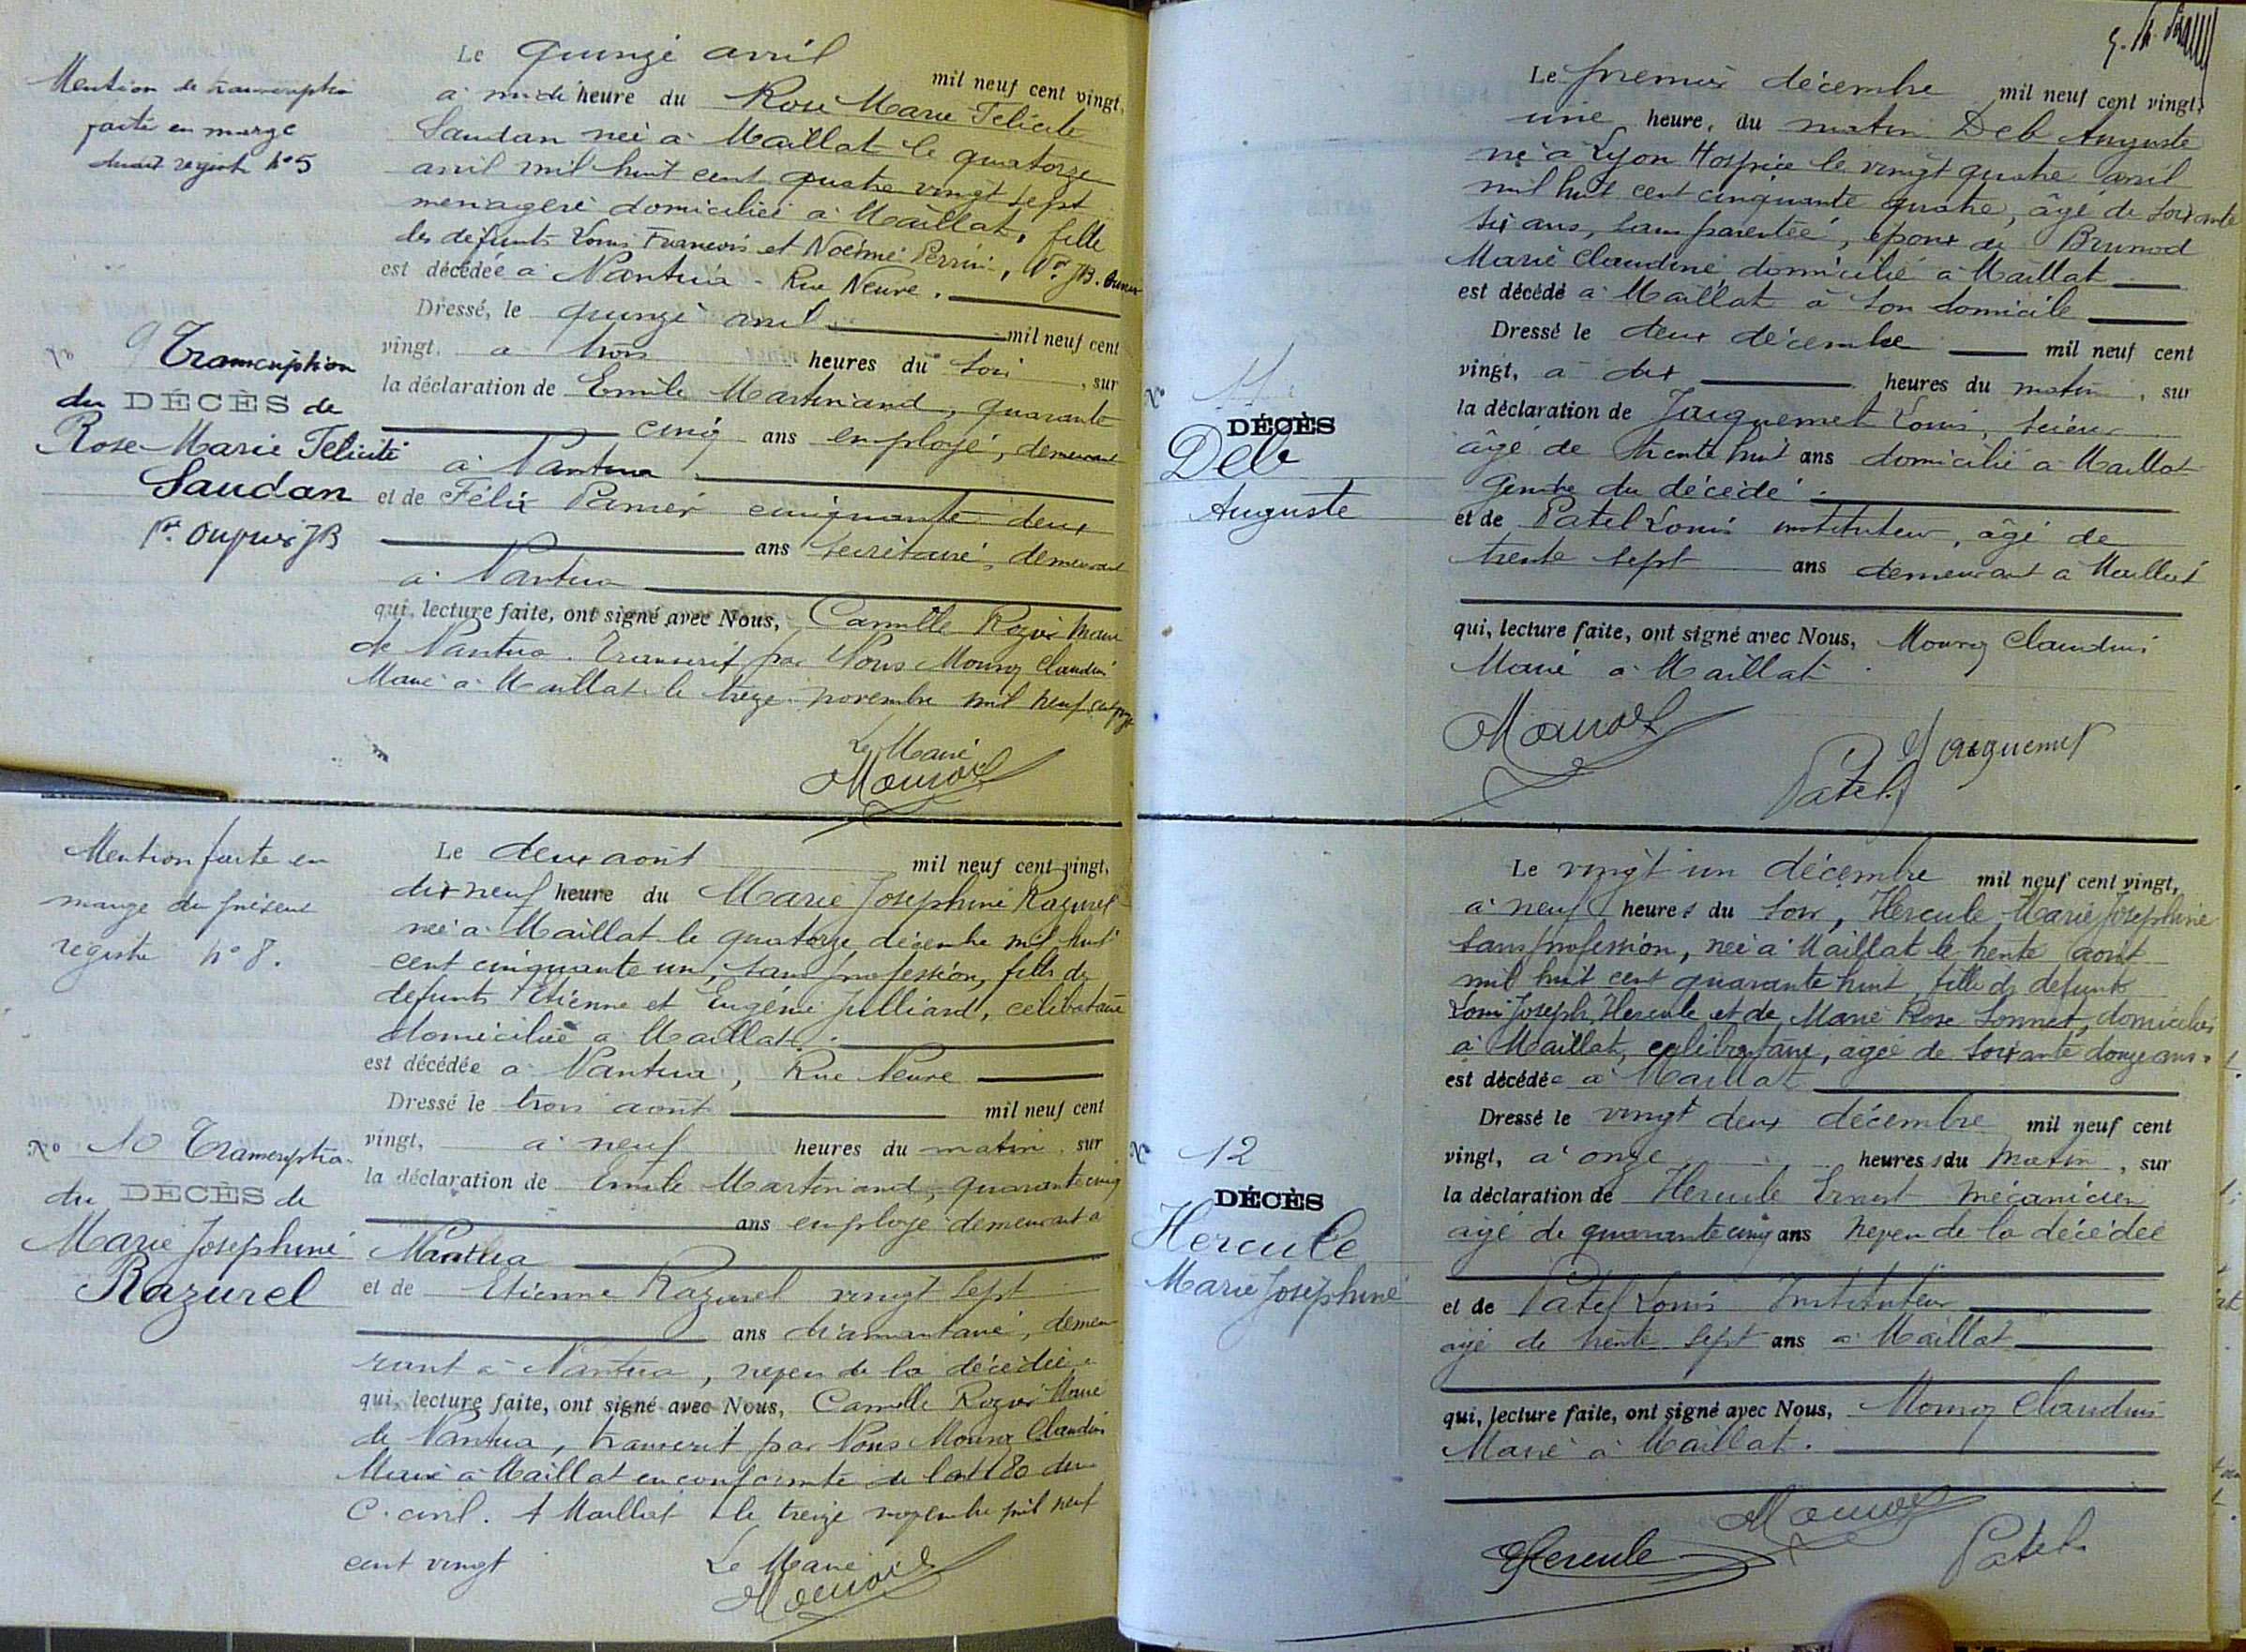 Mention de transcription
faite en marge
du registre No 5
No 9 Transcription
du DÉCÈS de
Rose-Marie Félicité
Saudan
Le quinze avril mil neuf cent vingt,
à midi heure du Rose Marie Félicité
Saudan née à Maillat le quatorze
avril mil huit cent quatre vingt sept
ménagère domiciliée à Maillat, fille
des défunts Louis François et Noémie Perrin, Vve JB.
est décédée à Nantua - Rue Neuve.
Dressé, le quinze avril mil neuf cent
vingt, à trois heures du soir, sur
la déclaration de Emile Martinand, quarante
cinq ans employé, demeurant
à Nantua
et de Félix Panier cinquante deux
ans secrétaire, demeurant
à Nantua
qui, lecture faite, ont signé avec Nous, Camille Rozier Maire
de Nantua. Transcrit par Nous Mouroz Claudius
Maire à Maillat le treize novembre mil neuf cent vingt
Le Maire
Mouroz
Mention faite en
marge du présent
registre No 8.
No 10 Transcription
du DÉCÈS de
Marie Joséphine
Razurel
Le deux août mil neuf cent vingt,
dix neuf heure du Marie Joséphine Razurel
née à Maillat le quatorze décembre mil huit
cent cinquante un, sans profession, fille de
défunts Etienne et Eugénie Julliard, célibataire
domiciliée à Maillat.
est décédée à Nantua, Rue Neuve
Dressé le trois août mil neuf cent
vingt, à neuf heures du matin, sur
la déclaration de Emile Martinand, quarante cinq
ans employé demeurant à
Nantua
et de Etienne Razurel vingt sept
ans diamantaire, demeu
rant à Nantua, neveu de la décédée
qui, lecture faite, ont signé avec Nous, Camille Rozier Maire
de Nantua, transcrit par Nous Mouroz Claudius
Maire à Maillat en conformité de l'art 80 du
C. civil. A Maillat le treize novembre mil neuf
cent vingt Le Maire
Mouroz
No 11
DÉCÈS
Deb
Auguste
Le premier décembre mil neuf cent vingt,
une heure, du matin Deb Auguste
né à Lyon Hospice le vingt quatre avril
mil huit cent cinquante quatre, âgé de soixante
six ans, sans parentée, époux de Brunod
Marie Claudine domicilié à Maillat
est décédé à Maillat à son domicile
Dressé le deux décembre mil neuf cent
vingt, à dix heures du matin, sur
la déclaration de Jacquemet Louis, scieur
âgé de trente huit ans domicilié à Maillat
Gendre du décédé.
et de Patel Louis instituteur, âgé de
trente sept ans demeurant à Maillat
qui, lecture faite, ont signé avec Nous, Mouroz Claudius
Maire à Maillat.
Mouroz
Jacquemet
Patel
No 12
DÉCÈS
Hercule
Marie Joséphine
Le vingt un décembre mil neuf cent vingt,
à neuf heures du soir, Hercule Marie Joséphine
sans profession, née à Maillat le trente août
mil huit cent quarante huit, fille de défunts
Louis Joseph Hercule et de Marie Rose Sonnet, domiciliés
à Maillat, célibataire, âgée de soixante douze ans.
est décédée à Maillat
Dressé le vingt deux décembre mil neuf cent
vingt, à onze heures du matin, sur
la déclaration de Hercule Ernest mécanicien
âgé de quarante cinq ans neveu de la décédée
et de Patel Louis Instituteur
âgé de trente sept ans à Maillat
qui, lecture faite, ont signé avec Nous, Mouroz Claudius
Maire à Maillat.
Mouroz
EHercule
Patel